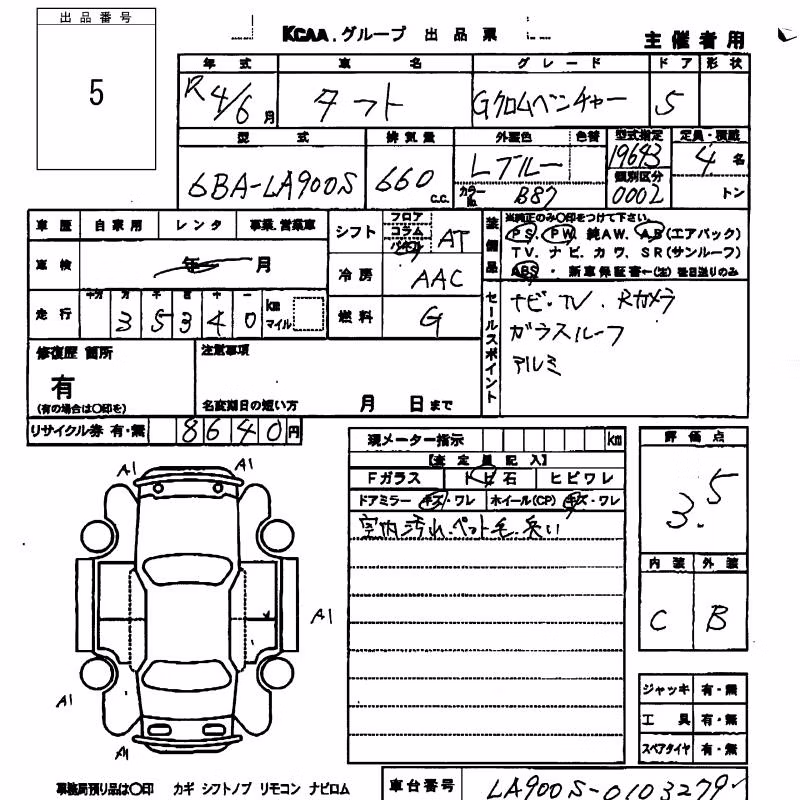 出品番号
5
KCAA.グループ 出品票
主催者用
年式 車名 グレード ドア 形状
R4/6月 タフト Gクロムベンチャー 5
型式 排気量 外装色 色替 型式指定 定員・積載
6BA-LA900S 660 c.c. Lブルー 19643 4名
カラーNo. B87 類別区分 0002 トン
車歴 自家用 レンタ 事業.営業車
シフト フロア コラム AT
装備品 当純正のみ〇印をつけて下さい。
PS. PW. 純AW. AB(エアバック)
TV. ナビ. カワ. SR(サンルーフ)
ABS ・ 新車保証書←(注)後日送りのみ
車検 年 月
冷房 AAC
走行 十万 万 千 百 十 一 km マイル
35340
燃料 G
セールスポイント
ナビ・TV. Rカメラ
ガラスルーフ
アルミ
修復歴 箇所
有
(有の場合は〇印を)
注意事項
名変期日の短い方 月 日まで
リサイクル券 有・無 8640円
現メーター指示 km
【査定員記入】
Fガラス 飛石 ヒビワレ
ドアミラー キズ・ワレ ホイール(CP) キズ・ワレ
室内汚れ.ペット毛.臭い
評価点
3.5
内装 外装
C B
A1 A1
A1
A1
A1
ジャッキ 有・無
工具 有・無
スペアタイヤ 有・無
事務局預り品は〇印 カギ シフトノブ リモコン ナビロム
車台番号 LA900S-0103279